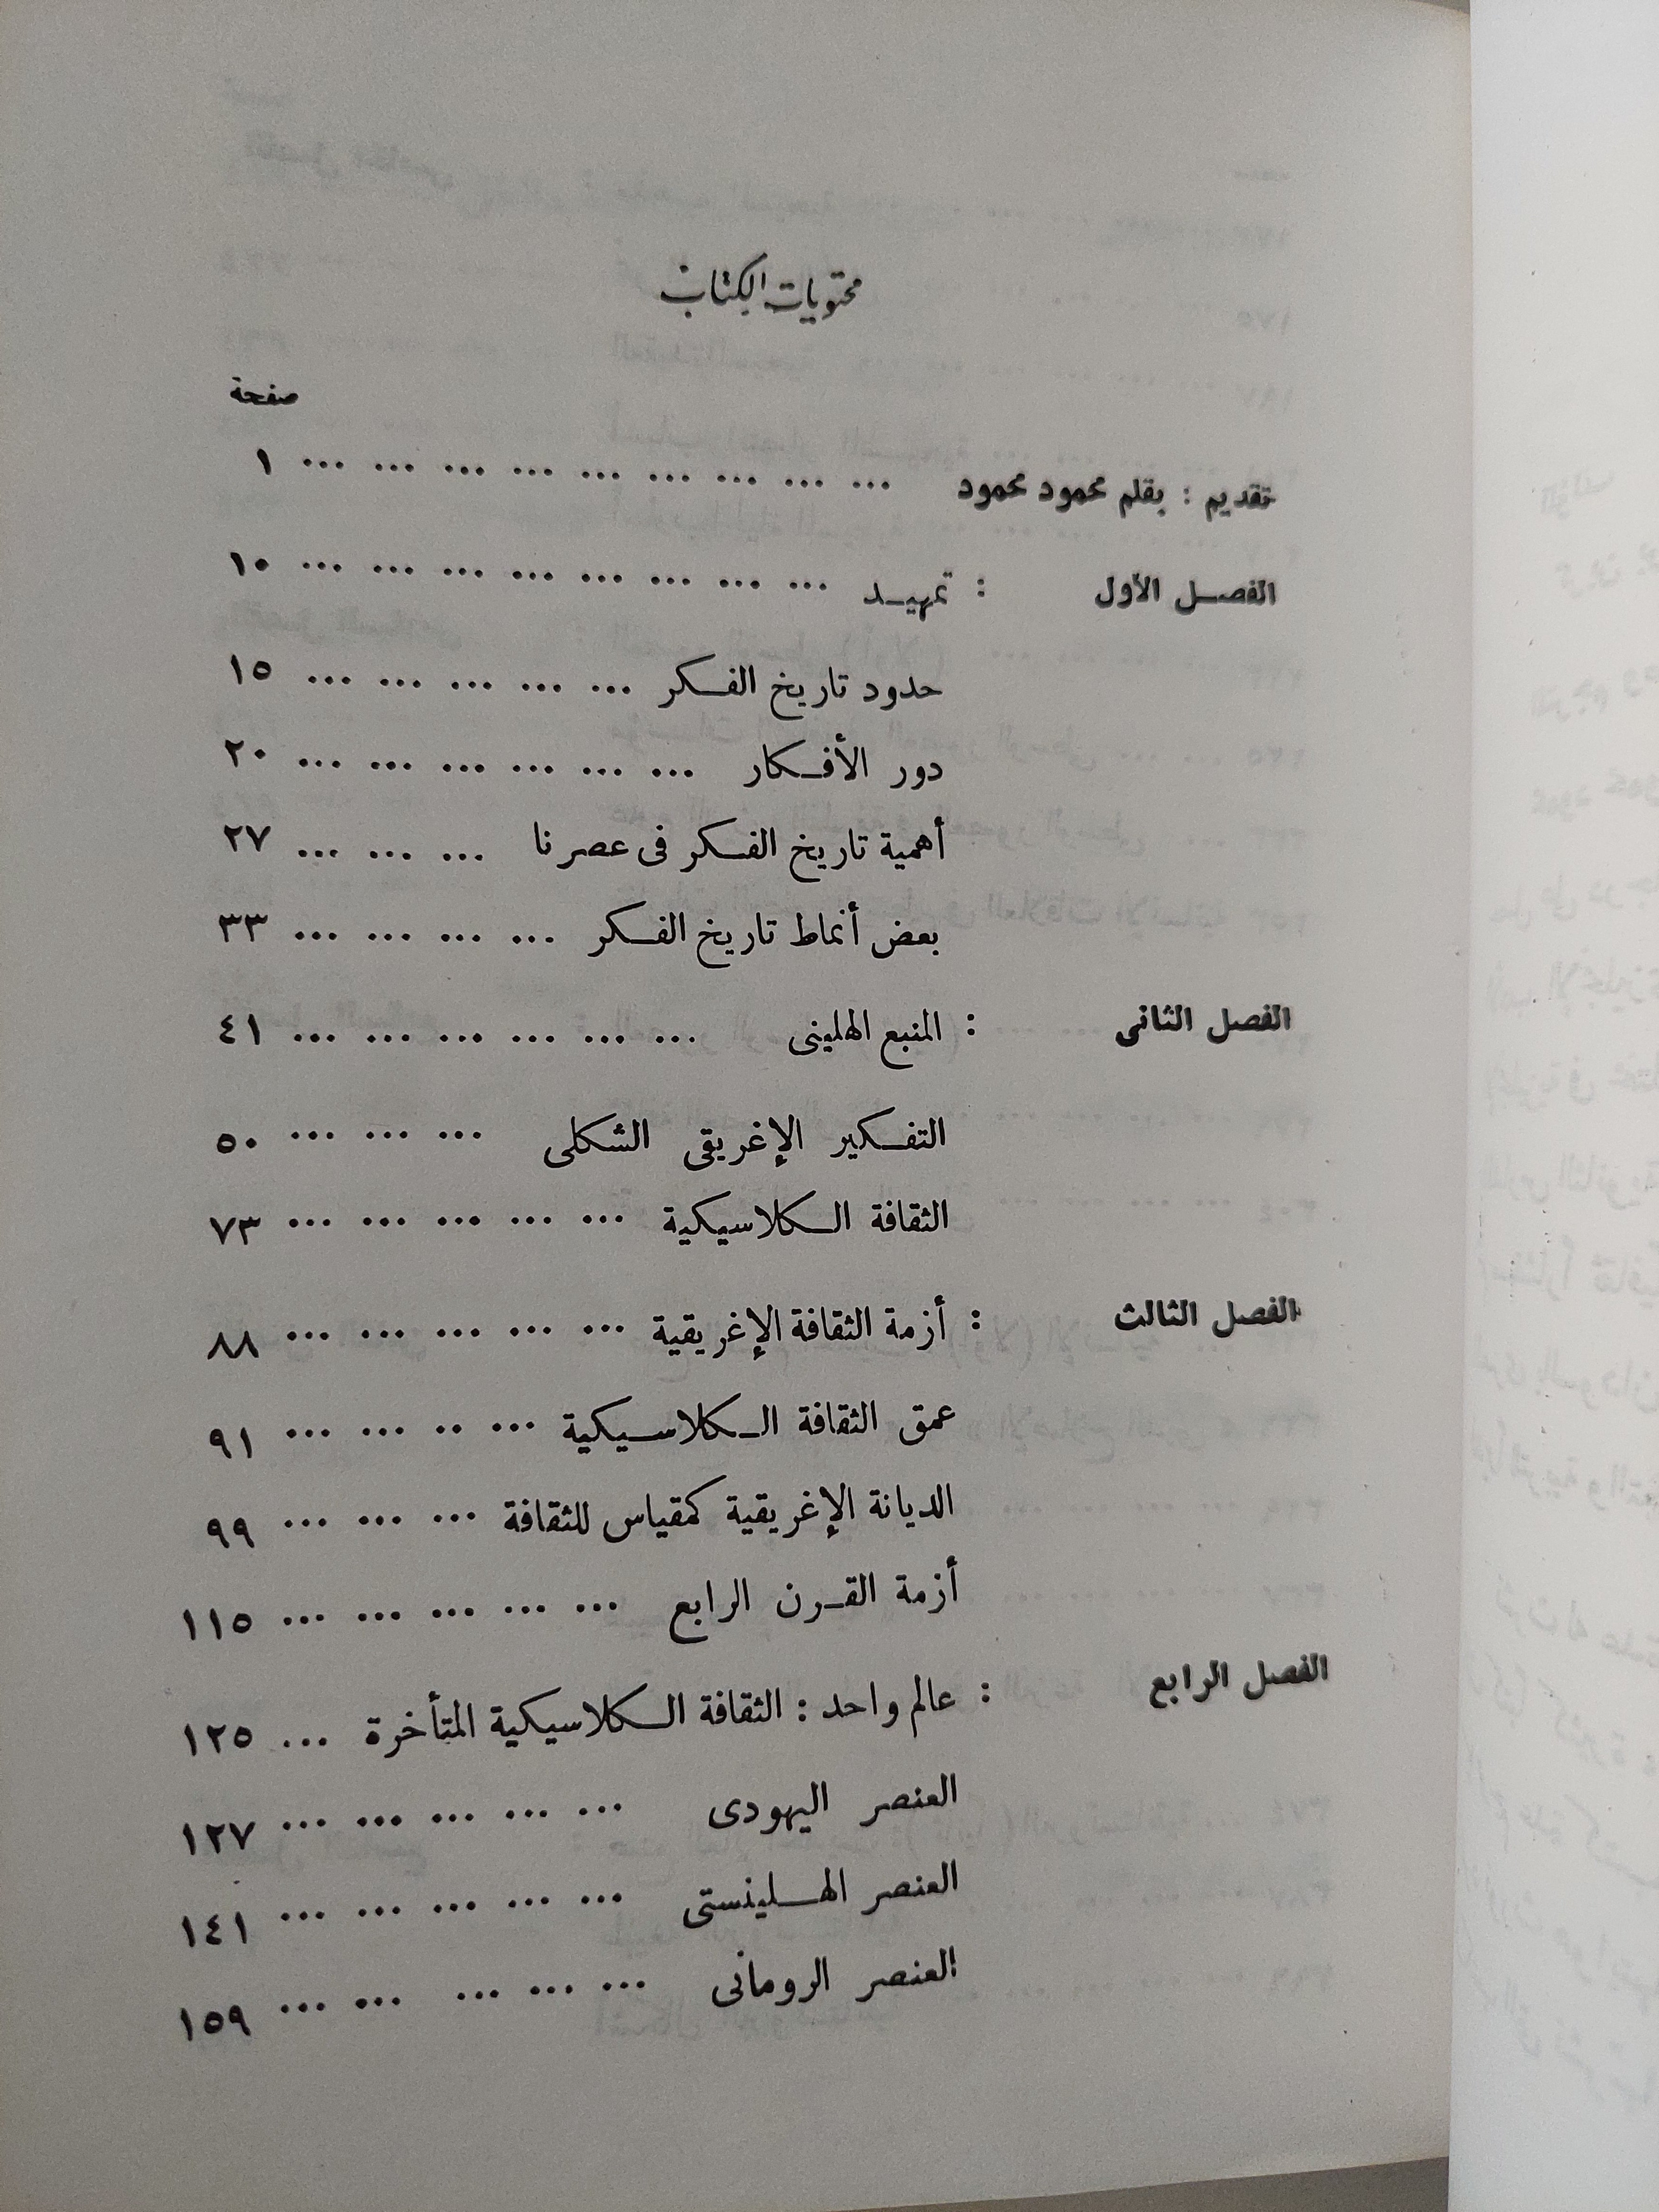 محتويات الكتاب
صفحة
تقديم : بقلم محمود محمود ... ... ... ... ... ... ... ... ... ١
الفصل الأول : تمهيد ... ... ... ... ... ... ... ... ١٠
حدود تاريخ الفكر ... ... ... ... ... ١٥
دور الأفكار ... ... ... ... ... ... ٢٠
أهمية تاريخ الفكر فى عصرنا ... ... ... ٢٧
بعض أنماط تاريخ الفكر ... ... ... ... ٣٣
الفصل الثانى : المنبع الهلينى ... ... ... ... ... ... ٤١
التفكير الإغريقى الشكلى ... ... ... ٥٠
الثقافة الكلاسيكية ... ... ... ... ... ٧٣
الفصل الثالث : أزمة الثقافة الإغريقية ... ... ... ... ... ٨٨
عمق الثقافة الكلاسيكية ... .. ... ... ٩١
الديانة الإغريقية كمقياس للثقافة ... ... ... ٩٩
أزمة القرن الرابع ... ... ... ... ... ١١٥
الفصل الرابع : عالم واحد : الثقافة الكلاسيكية المتأخرة ... ١٢٥
العنصر اليهودى ... ... ... ... ... ١٢٧
العنصر الهلينستى ... ... ... ... ... ١٤١
العنصر الرومانى ... ... ... ... ... ١٥٩